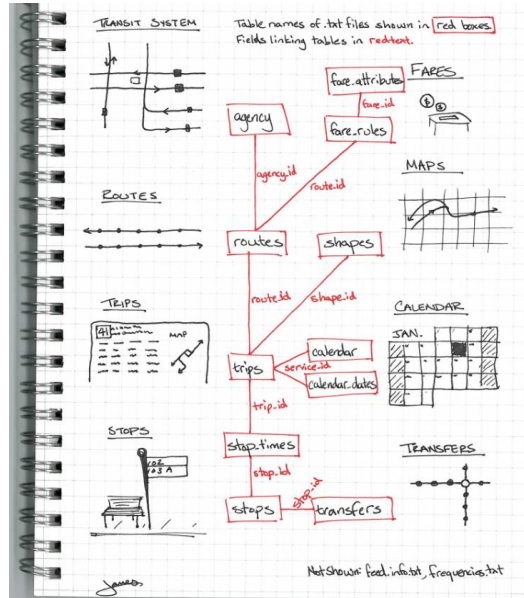 TRANSIT SYSTEM
Table names of .txt files shown in red boxes.
Fields linking tables in red text.
FARES
fare_attributes
fare_id
agency
fare_rules
agency_id
route_id
MAPS
ROUTES
routes
shapes
route_id
shape_id
TRIPS
41
MAP
CALENDAR
JAN.
calendar
trips
service_id
calendar_dates
trip_id
STOPS
102
103A
stop_times
TRANSFERS
stop_id
stop_id
stops
transfers
Not Shown: feed_info.txt, frequencies.txt